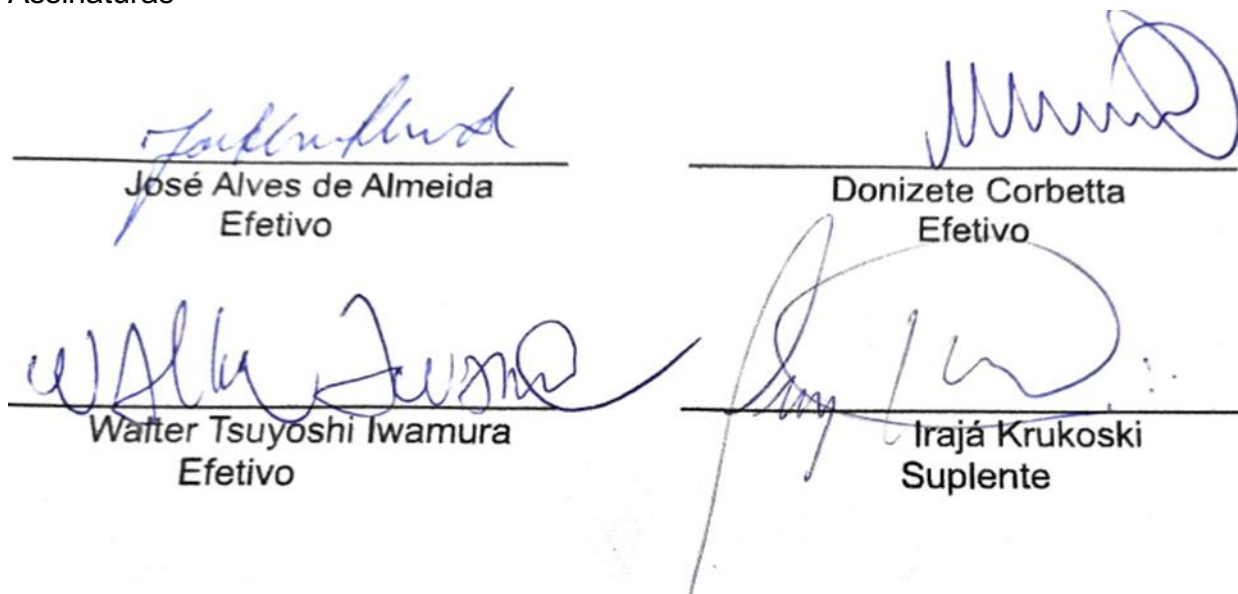 Assinaturas
José Alves de Almeida
Efetivo
Donizete Corbetta
Efetivo
Walter Tsuyoshi Iwamura
Efetivo
Irajá Krukoski
Suplente